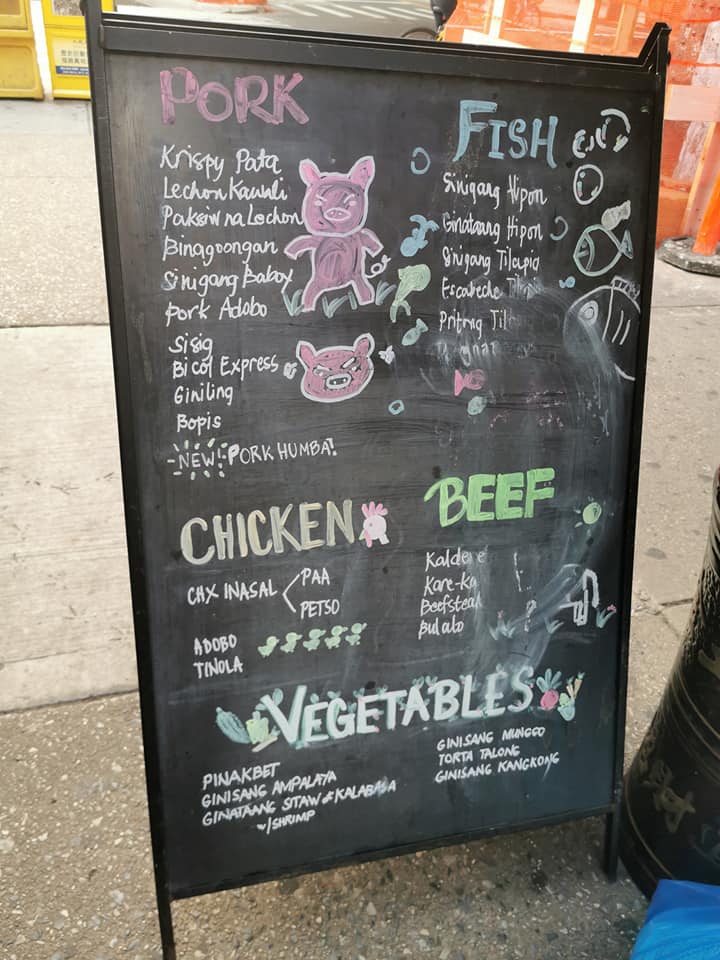 PORK
Krispy Pata
Lechon Kawali
Paksiw na Lechon
Binagoongan
Sinigang Baboy
Pork Adobo
Sisig
Bicol Express
Giniling
Bopis
NEW! PORK HUMBA!
FISH
Sinigang Hipon
Ginataang Hipon
Sinigang Tilapia
Escabeche
Pritong
CHICKEN
CHX INASAL
PAA
PETSO
ADOBO
TINOLA
BEEF
Beefsteak
Bulalo
VEGETABLES
PINAKBET
GINISANG AMPALAYA
GINATAANG SITAW & KALABASA
w/SHRIMP
GINISANG MUNGGO
TORTA TALONG
GINISANG KANGKONG